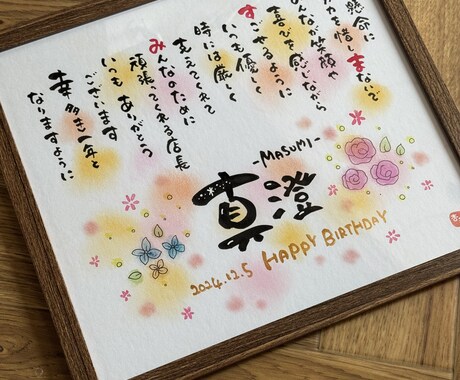 懸命に
力も惜しまないで
んなが笑顔や
喜びを感じながら
すごせるように
いつも優しく
時には厳しく
支えてくれて
みんなのために
頑張ってくれる店長
いつもありがとう
ございます
幸多き一年と
なりますように
-MASUMI-
真澄
2024.12.5 HAPPY BIRTHDAY